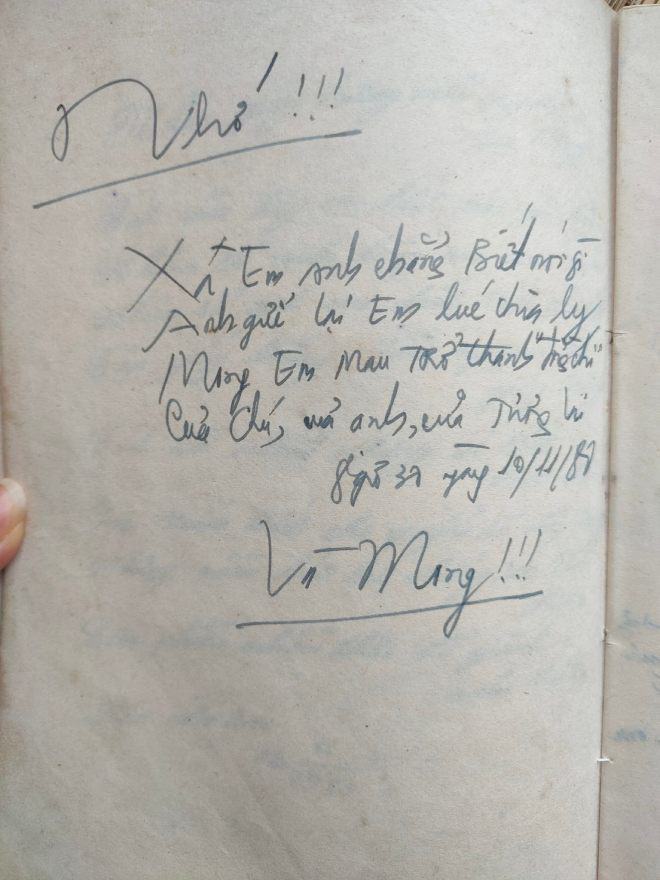 Nhớ !!!
Xa Em anh chẳng Biết nói gì
Anh gửi lại Em lúc chia ly
Mong Em Mau Trở thành
Của Chú, và anh, của
8 giờ 30 ngày 10/11/87
Và Mong !!!